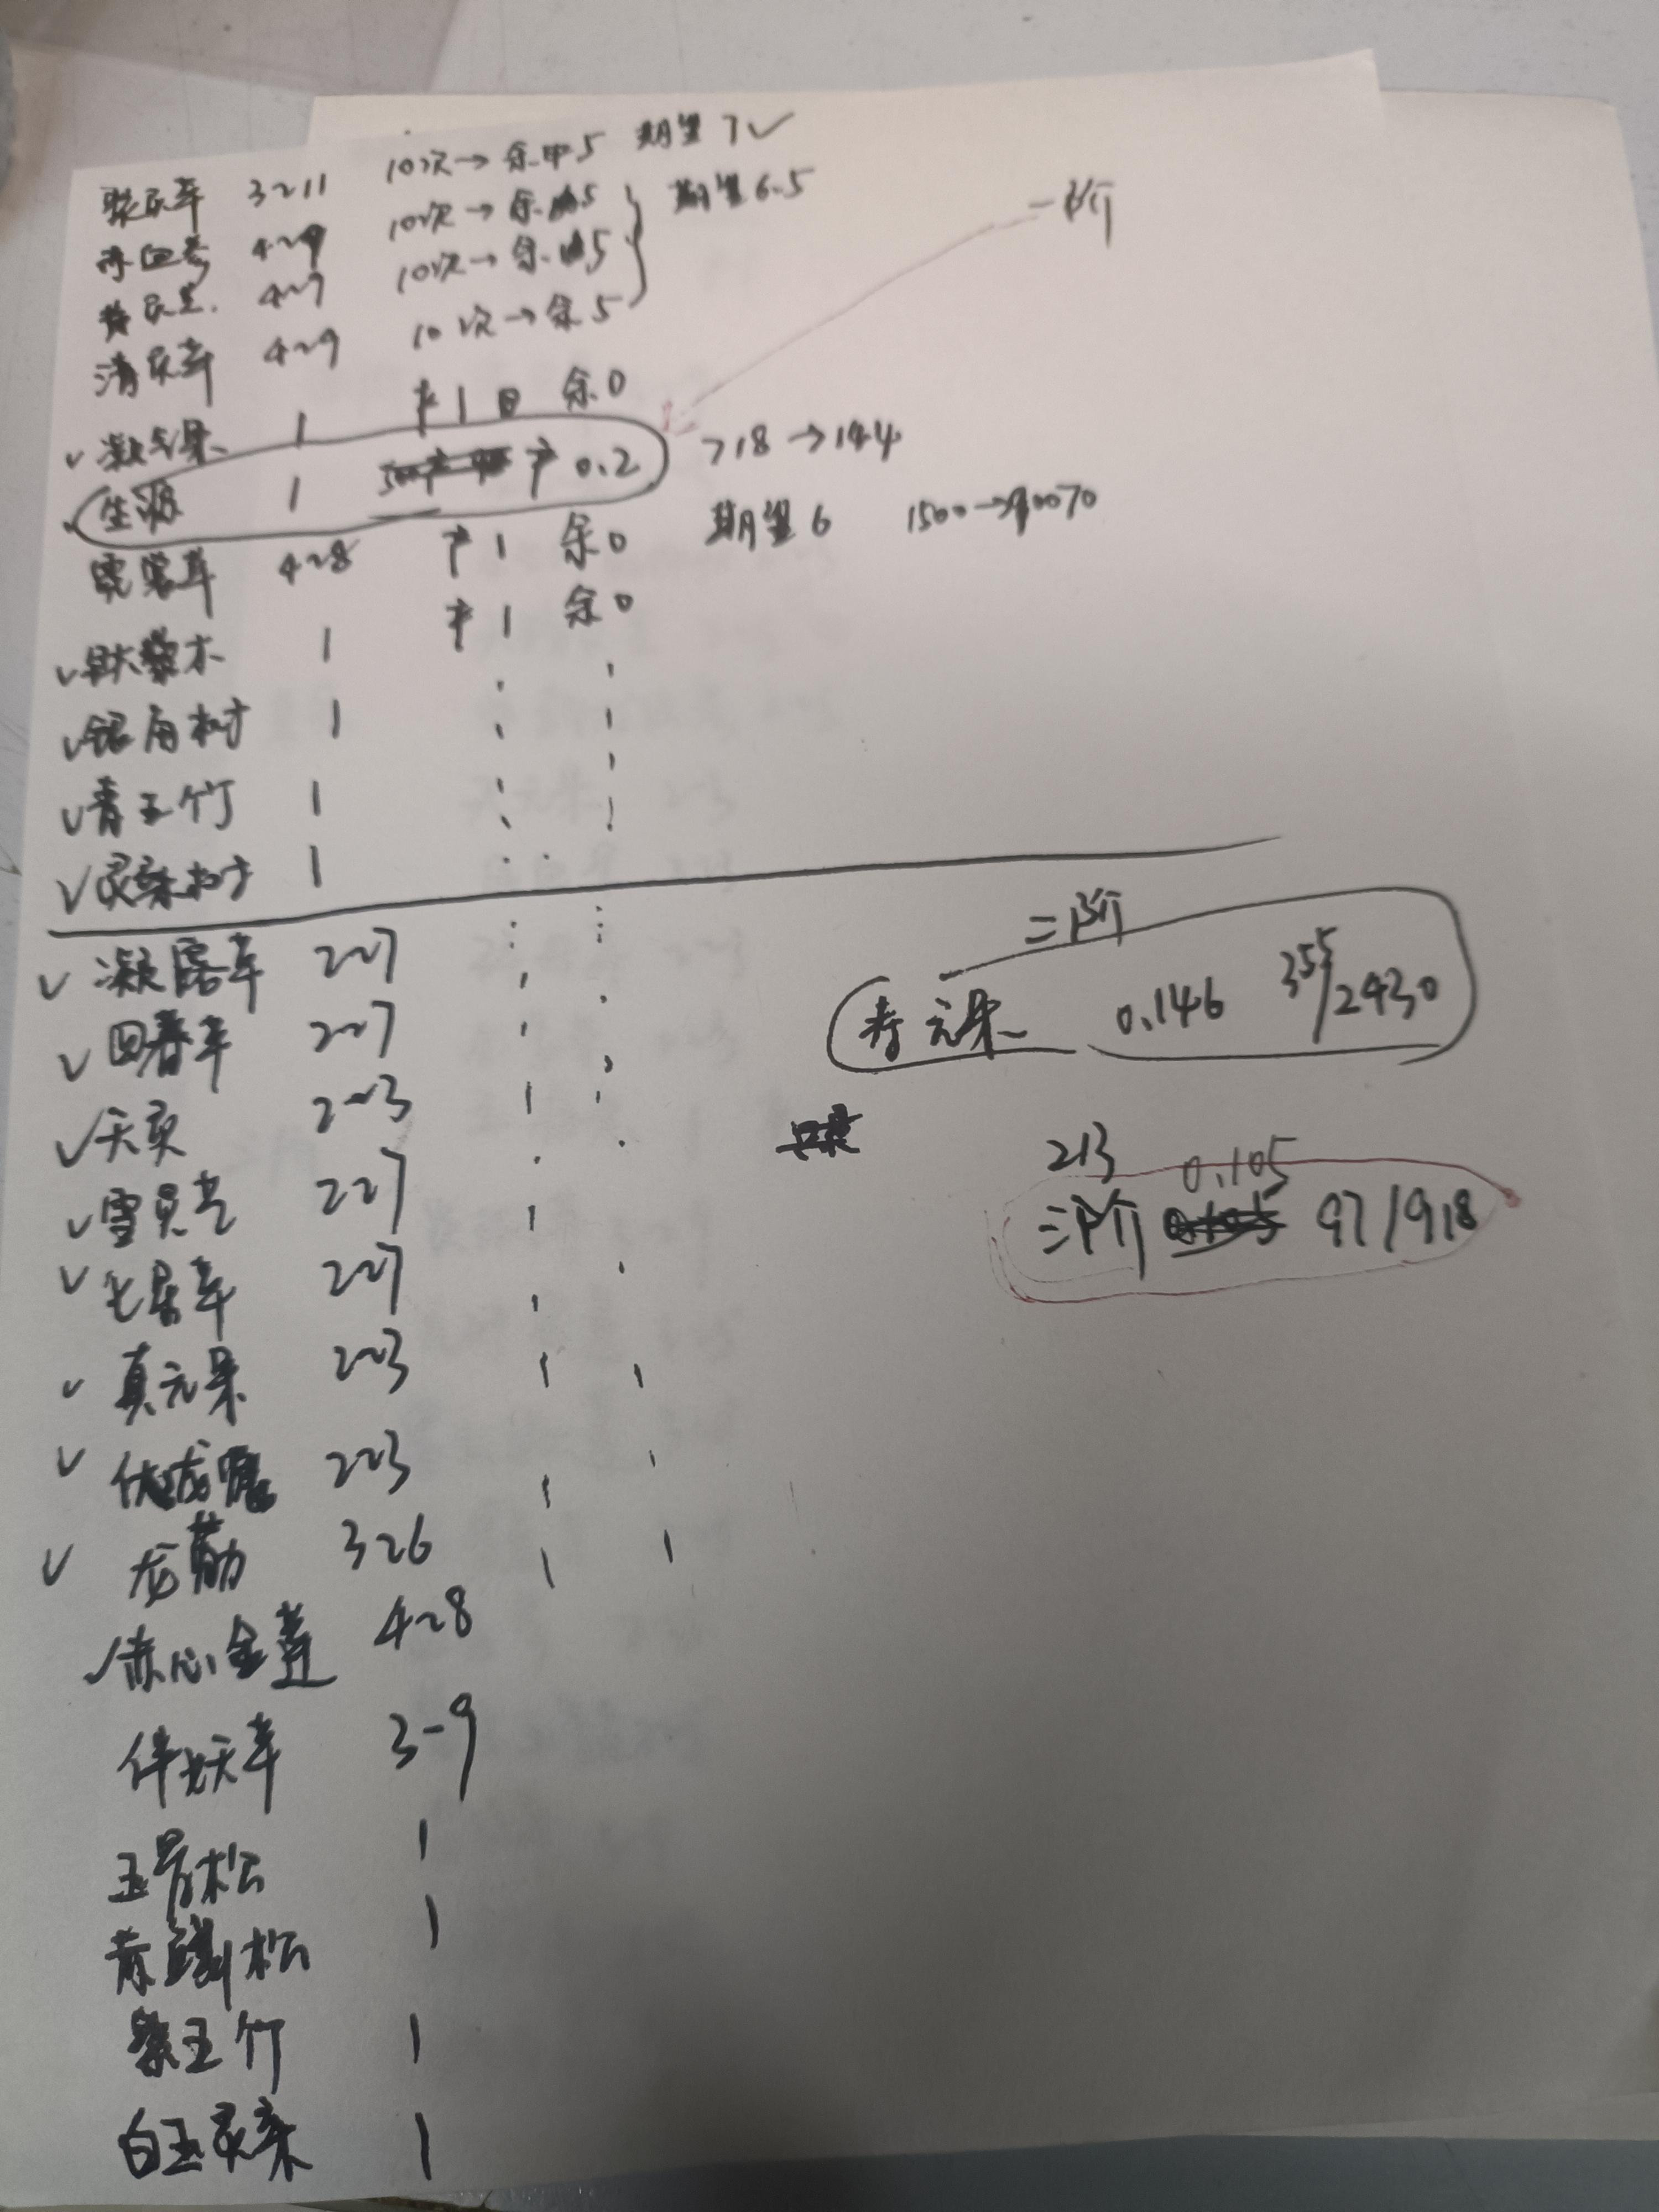 聚灵草 3~11 10次→余中5 期望7✓
赤血参 4~9 10次→余5 期望6.5
黄灵芝 4~7 10次→余5
清灵草 4~9 10次→余5
一阶
✓凝气果 1 产1 余0
✓生源 1 产0.2 718→144
晓露草 4~8 产1 余0 期望6 1500→
✓铁黎木 1 产1 余0
✓银角树 1
✓青玉竹 1
✓灵桑树 1
二阶
✓凝露草 2~7
寿元果 0.146 355/2430
✓回春草 2~7
✓天灵 2~3
213 0.105
✓雪灵芝 2~7
三阶 97/918
✓七星草 2~7
✓真元果 2~3
✓优昙 2~3
✓龙筋 3~6
✓赤心金莲 4~8
伴妖草 3-9
玉骨松 1
青鳞松 1
紫玉竹 1
白玉灵桑 1